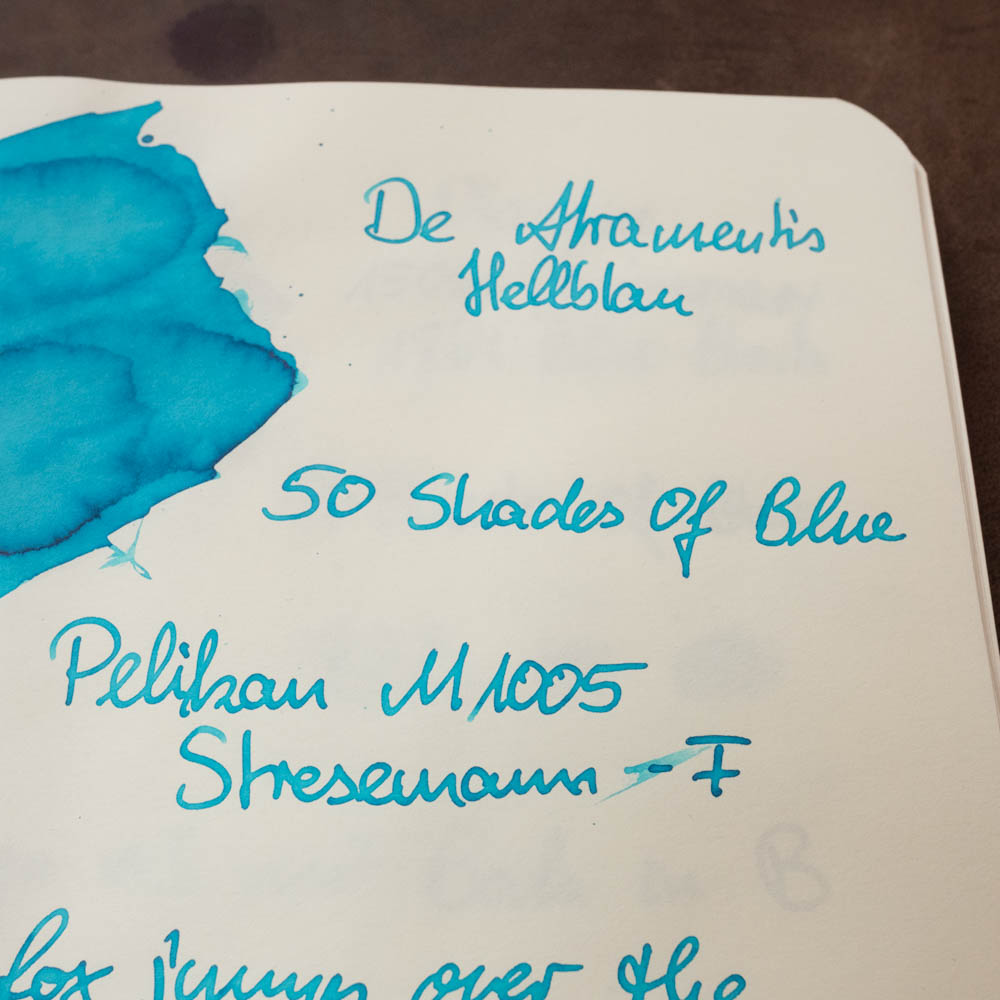 De Atramentis
Hellblau
50 Shades Of Blue
Pelikan M1005
Stresemann - F
fox jumps over the